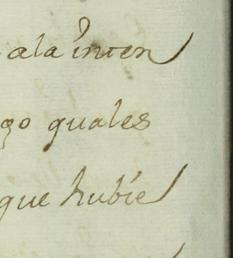 ala inten
go quales
que hubie